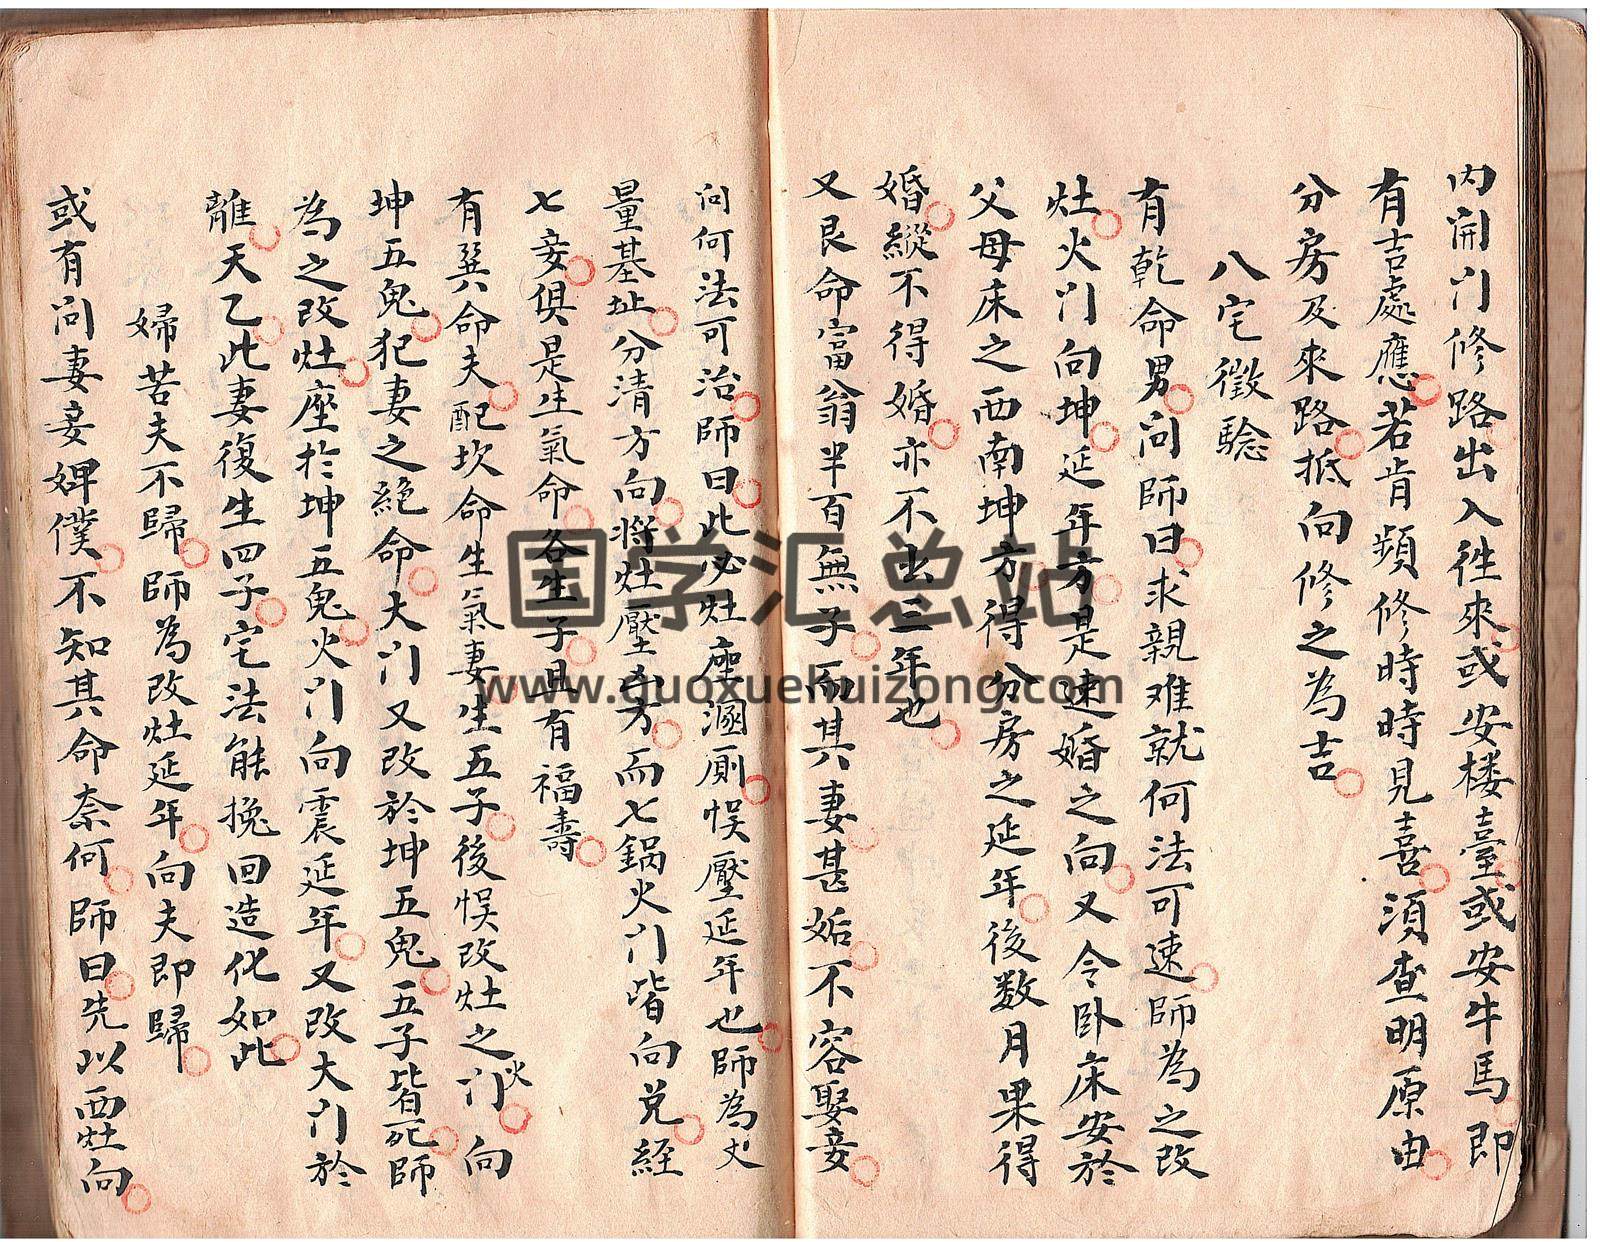 内開门修路出入徃來或安楼臺或安牛馬即
有吉處應若肯頻修時時見喜須查明原由
分房及來路抵向修之為吉
八宅徵騐
有乾命男问師曰求親难就何法可速師為之改
灶火门向坤延年方是速婚之向又令卧床安於
父母床之西南坤方得分房之延年後数月果得
婚縱不得婚亦不出三年也
又艮命富翁半百無子而其妻甚妬不容娶妾
问何法可治師曰此必灶座溷厠悞壓延年也師為丈
量基址分清方向将灶壓凶方而七鍋火门皆向兑経
七妾俱是生氣命各生子且有福壽
有巽命夫配坎命生氣妻生五子後悞改灶之火门向
坤五鬼犯妻之絶命大门又改於坤五鬼五子皆死師
為之改灶座扵坤五鬼火门向震延年又改大门於
離天乙此妻復生四子宅法能挽回造化如此
婦苦夫不歸師為改灶延年向夫即歸
或有问妻妾婢僕不知其命奈何師曰先以西灶向
国学汇总站
www.guoxuehuizong.com